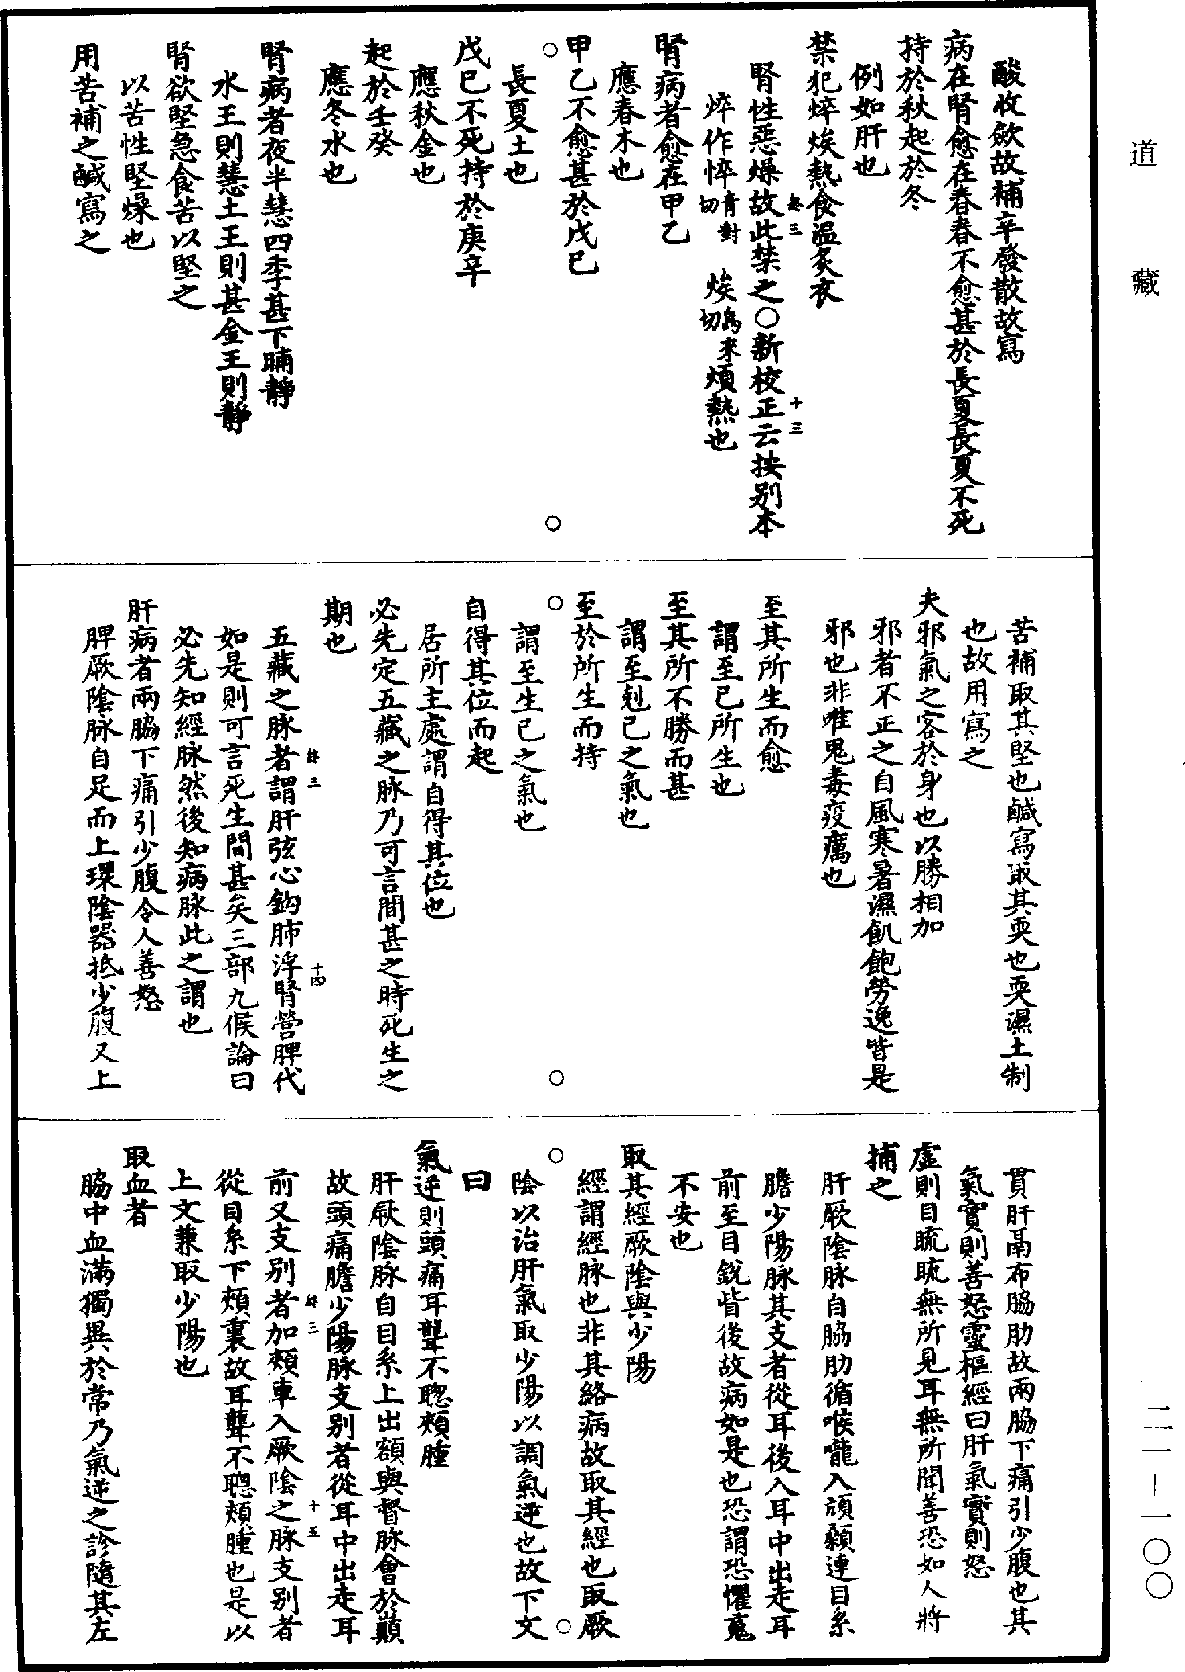 道藏
酸收歛故補辛發散故寫
病在腎愈在春春不愈甚於長夏長夏不死
持於秋起於冬
例如肝也
禁犯焠㶼熱食温炙衣
腎性惡燥故此禁之○新校正云按别本
焠作悴
青對切
㶼
烏來切
煩熱也
腎病者愈在甲乙
應春木也
甲乙不愈甚於戊巳
長夏土也
戊巳不死持於庚辛
應秋金也
起於壬癸
應冬水也
腎病者夜半慧四季甚下晡靜
水王則慧土王則甚金王則靜
腎欲堅急食苦以堅之
以苦性堅燥也
用苦補之鹹寫之
苦補取其堅也鹹寫取其耎也耎濕土制
也故用寫之
夫邪氣之客於身也以勝相加
邪者不正之目風寒暑濕飢飽勞逸皆是
邪也非唯鬼毒疫癘也
至其所生而愈
謂至已所生也
至其所不勝而甚
謂至剋已之氣也
至於所生而持
謂至生已之氣也
自得其位而起
居所主處謂自得其位也
必先定五藏之脉乃可言間甚之時死生之
期也
五藏之脉者謂肝弦心鈎肺浮腎營脾代
如是則可言死生間甚矣三部九候論曰
必先知經脉然後知病脉此之謂也
肝病者兩脇下痛引少腹令人善怒
脾厥陰脉自足而上環陰器抵少腹又上
貫肝鬲布脇肋故兩脇下痛引少腹也其
氣實則善怒靈樞經曰肝氣實則怒
虛則目䀮䀮無所見耳無所聞善恐如人將
捕之
肝厥陰脉自脇肋循喉嚨入頏顙連目系
膽少陽脉其支者從耳後入耳中出走耳
前至目銳眥後故病如是也恐謂恐懼䰟
不安也
取其經厥陰與少陽
經謂經脉也非其絡病故取其經也取厥
陰以治肝氣取少陽以調氣逆也故下文
曰
氣逆則頭痛耳聾不聰頰腫
肝厥陰脉自目系上出額與督脉會於巔
故頭痛膽少陽脉支别者從耳中出走耳
前又支别者加頰車入厥陰之脉支别者
從目系下頰裏故耳聾不聰頰腫也是以
上文兼取少陽也
取血者
脇中血滿獨異於常乃氣逆之診隨其左
二一—一〇〇